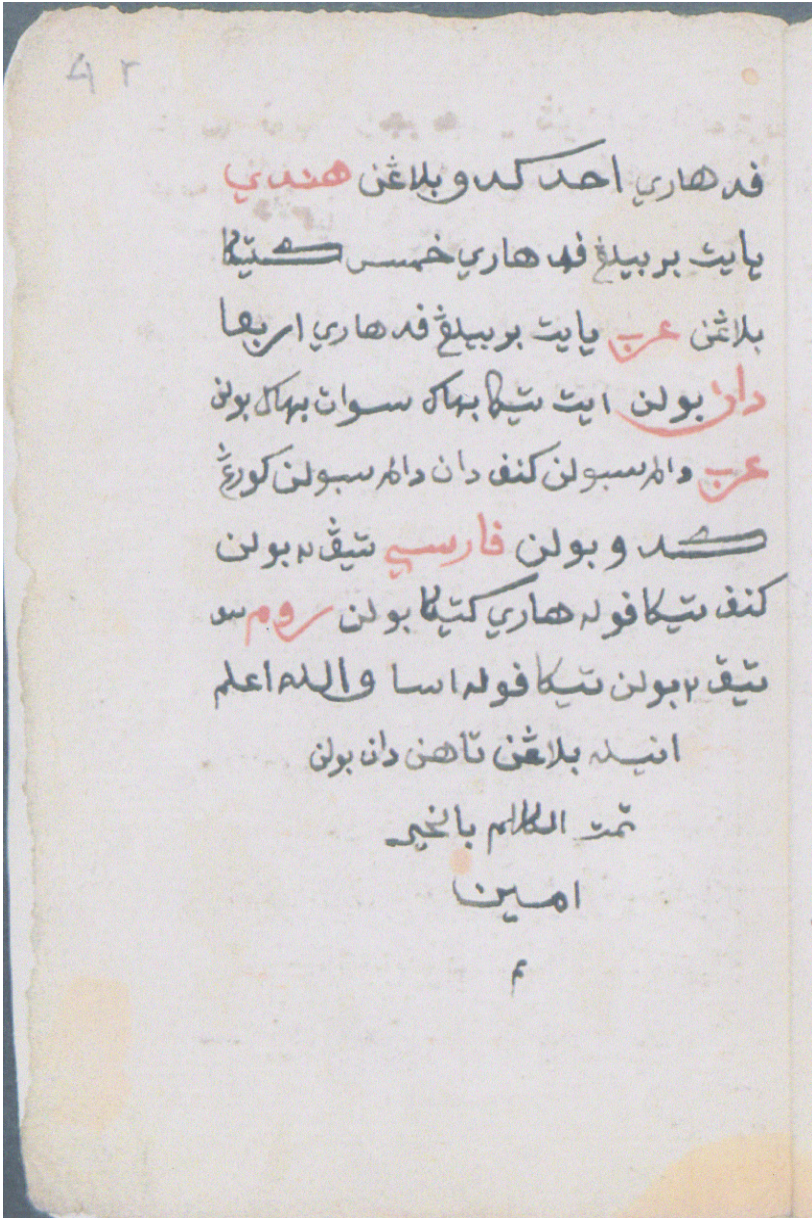 ٤٢
فد هاري احد كدو بلاغن هندي
يايت بربيلڠ فد هاري خمسر كتيكا
بلاڠن عرب يايت بربيلڠ فد هاري اربعا
دان بولن ايت تيكا بهاݢ سوات بهاݢ بولن
عرب دالم سبولن كنف دان دالم سبولن كورڠ
كدو بولن فارسي تيڤ٢ بولن
كنف تيكا فوله هاري كتيكا بولن روم
تيڤ٢ بولن تيكا فوله اسا والله اعلم
انيله بلاڠن تاهن دان بولن
تمت الكلام بالخير
امين
م